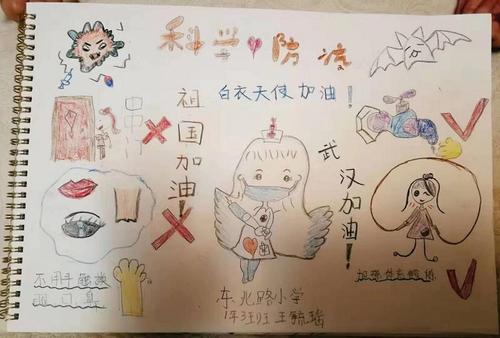 科学防疫
白衣天使加油！
祖国加油！
武汉加油！
串门
不用手触摸
眼口鼻
加强体育锻炼
东北路小学
1年3班 王毓瑶